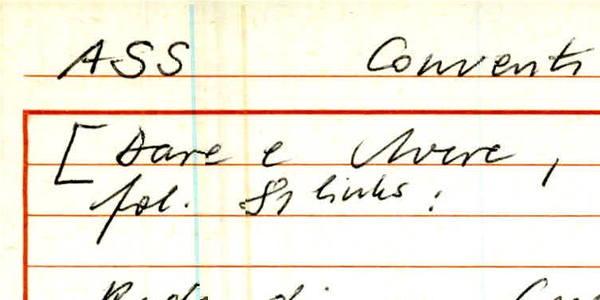 ASS Conventi
[Dare e Avere,
fol. 81 links: